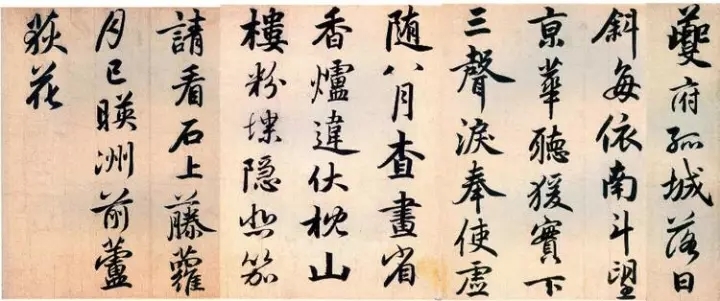 夔府孤城落日
斜每依南斗望
京華聴猨實下
三聲淚奉使虛
随八月查畫省
香爐違伏枕山
樓粉堞隐悲笳
請看石上藤蘿
月已暎洲前蘆
荻花